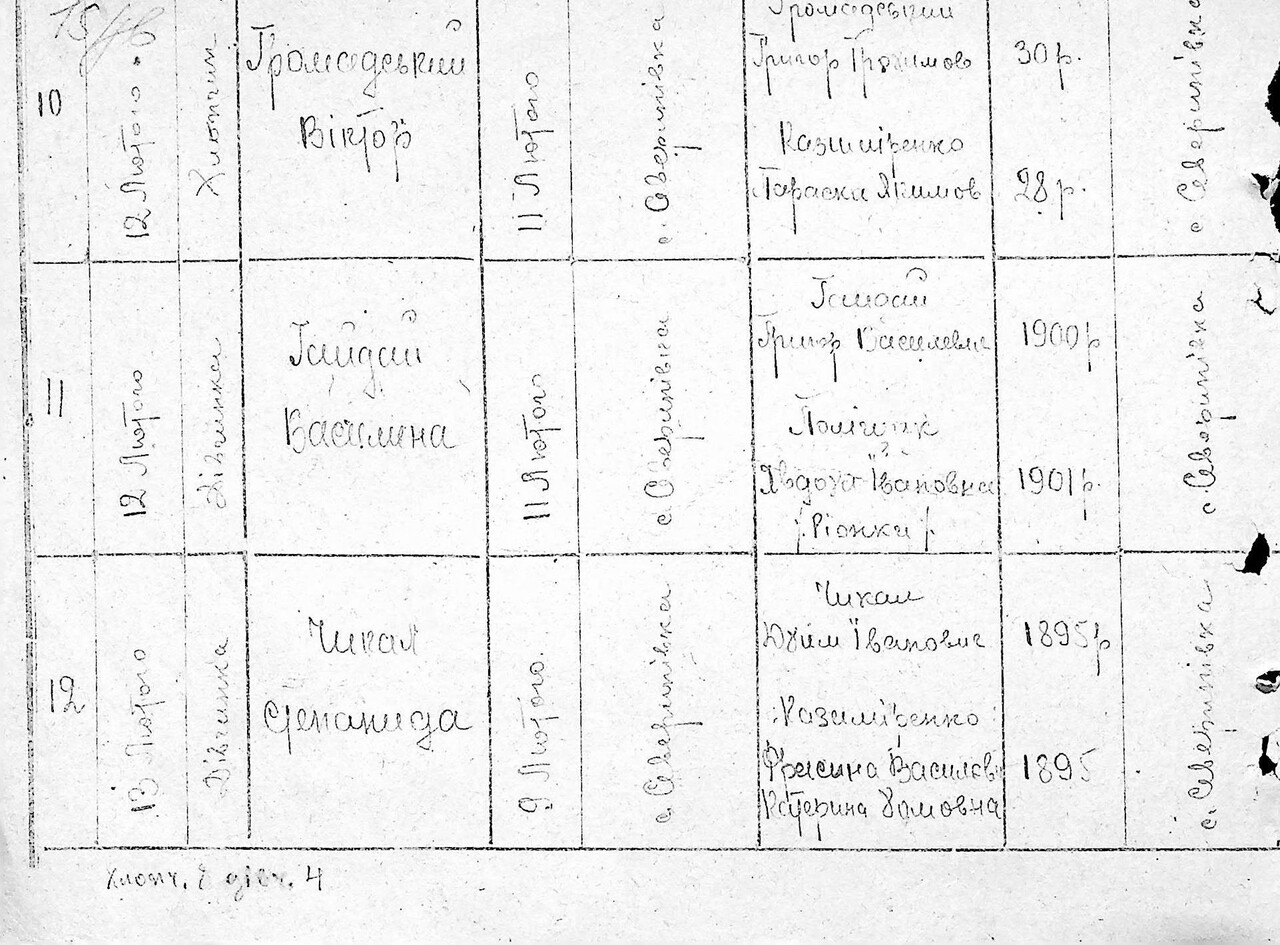 10
12 Лютого
Хлопчик
Громадський
Віктор
11 Лютого
с. Северинівка
Громадський
Григор Трохимов
Казиміренко
Параска Якимов
30 р.
28 р.
с Северинівка
11
12 Лютого
Дівчинка
Гайдай
Василина
11 Лютого
с. Северинівка
Гайдай
Григор Василевич
Поліщук
Явдоха Івановна
1900р
1901р.
с. Северинівка
12
13 Лютого
Дівчинка
Чикал
Степанида
9 Лютого.
с. Северинівка
Чикал
Юхим Іванович
Казиміренко
Василєв
Катерина Хомовна
1895р
1895
с. Северинівка
Хлопч. 8 дівч. 4